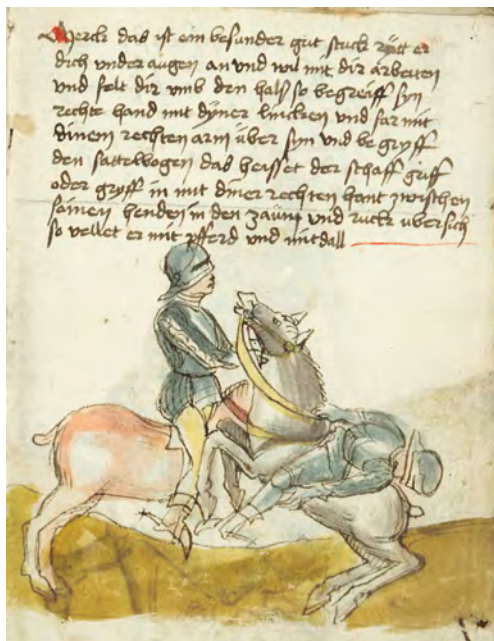 Merck das ist ein besunder gut stuck rytt er
dich vnder augen an vnd wil mit dir arbeiten
vnd felt dir vmb den hals so begreiff syn
rechte hand mit dyner lincken vnd far mit
dinem rechten arm über syn vnd begryff
den sattelbogen das heisset der schaff griff
oder gryff in mit diner rechten hant zwischen
sainen henden in den zaum vnd ruck ubersich
so vellet er mit pfferd vnd mitdall